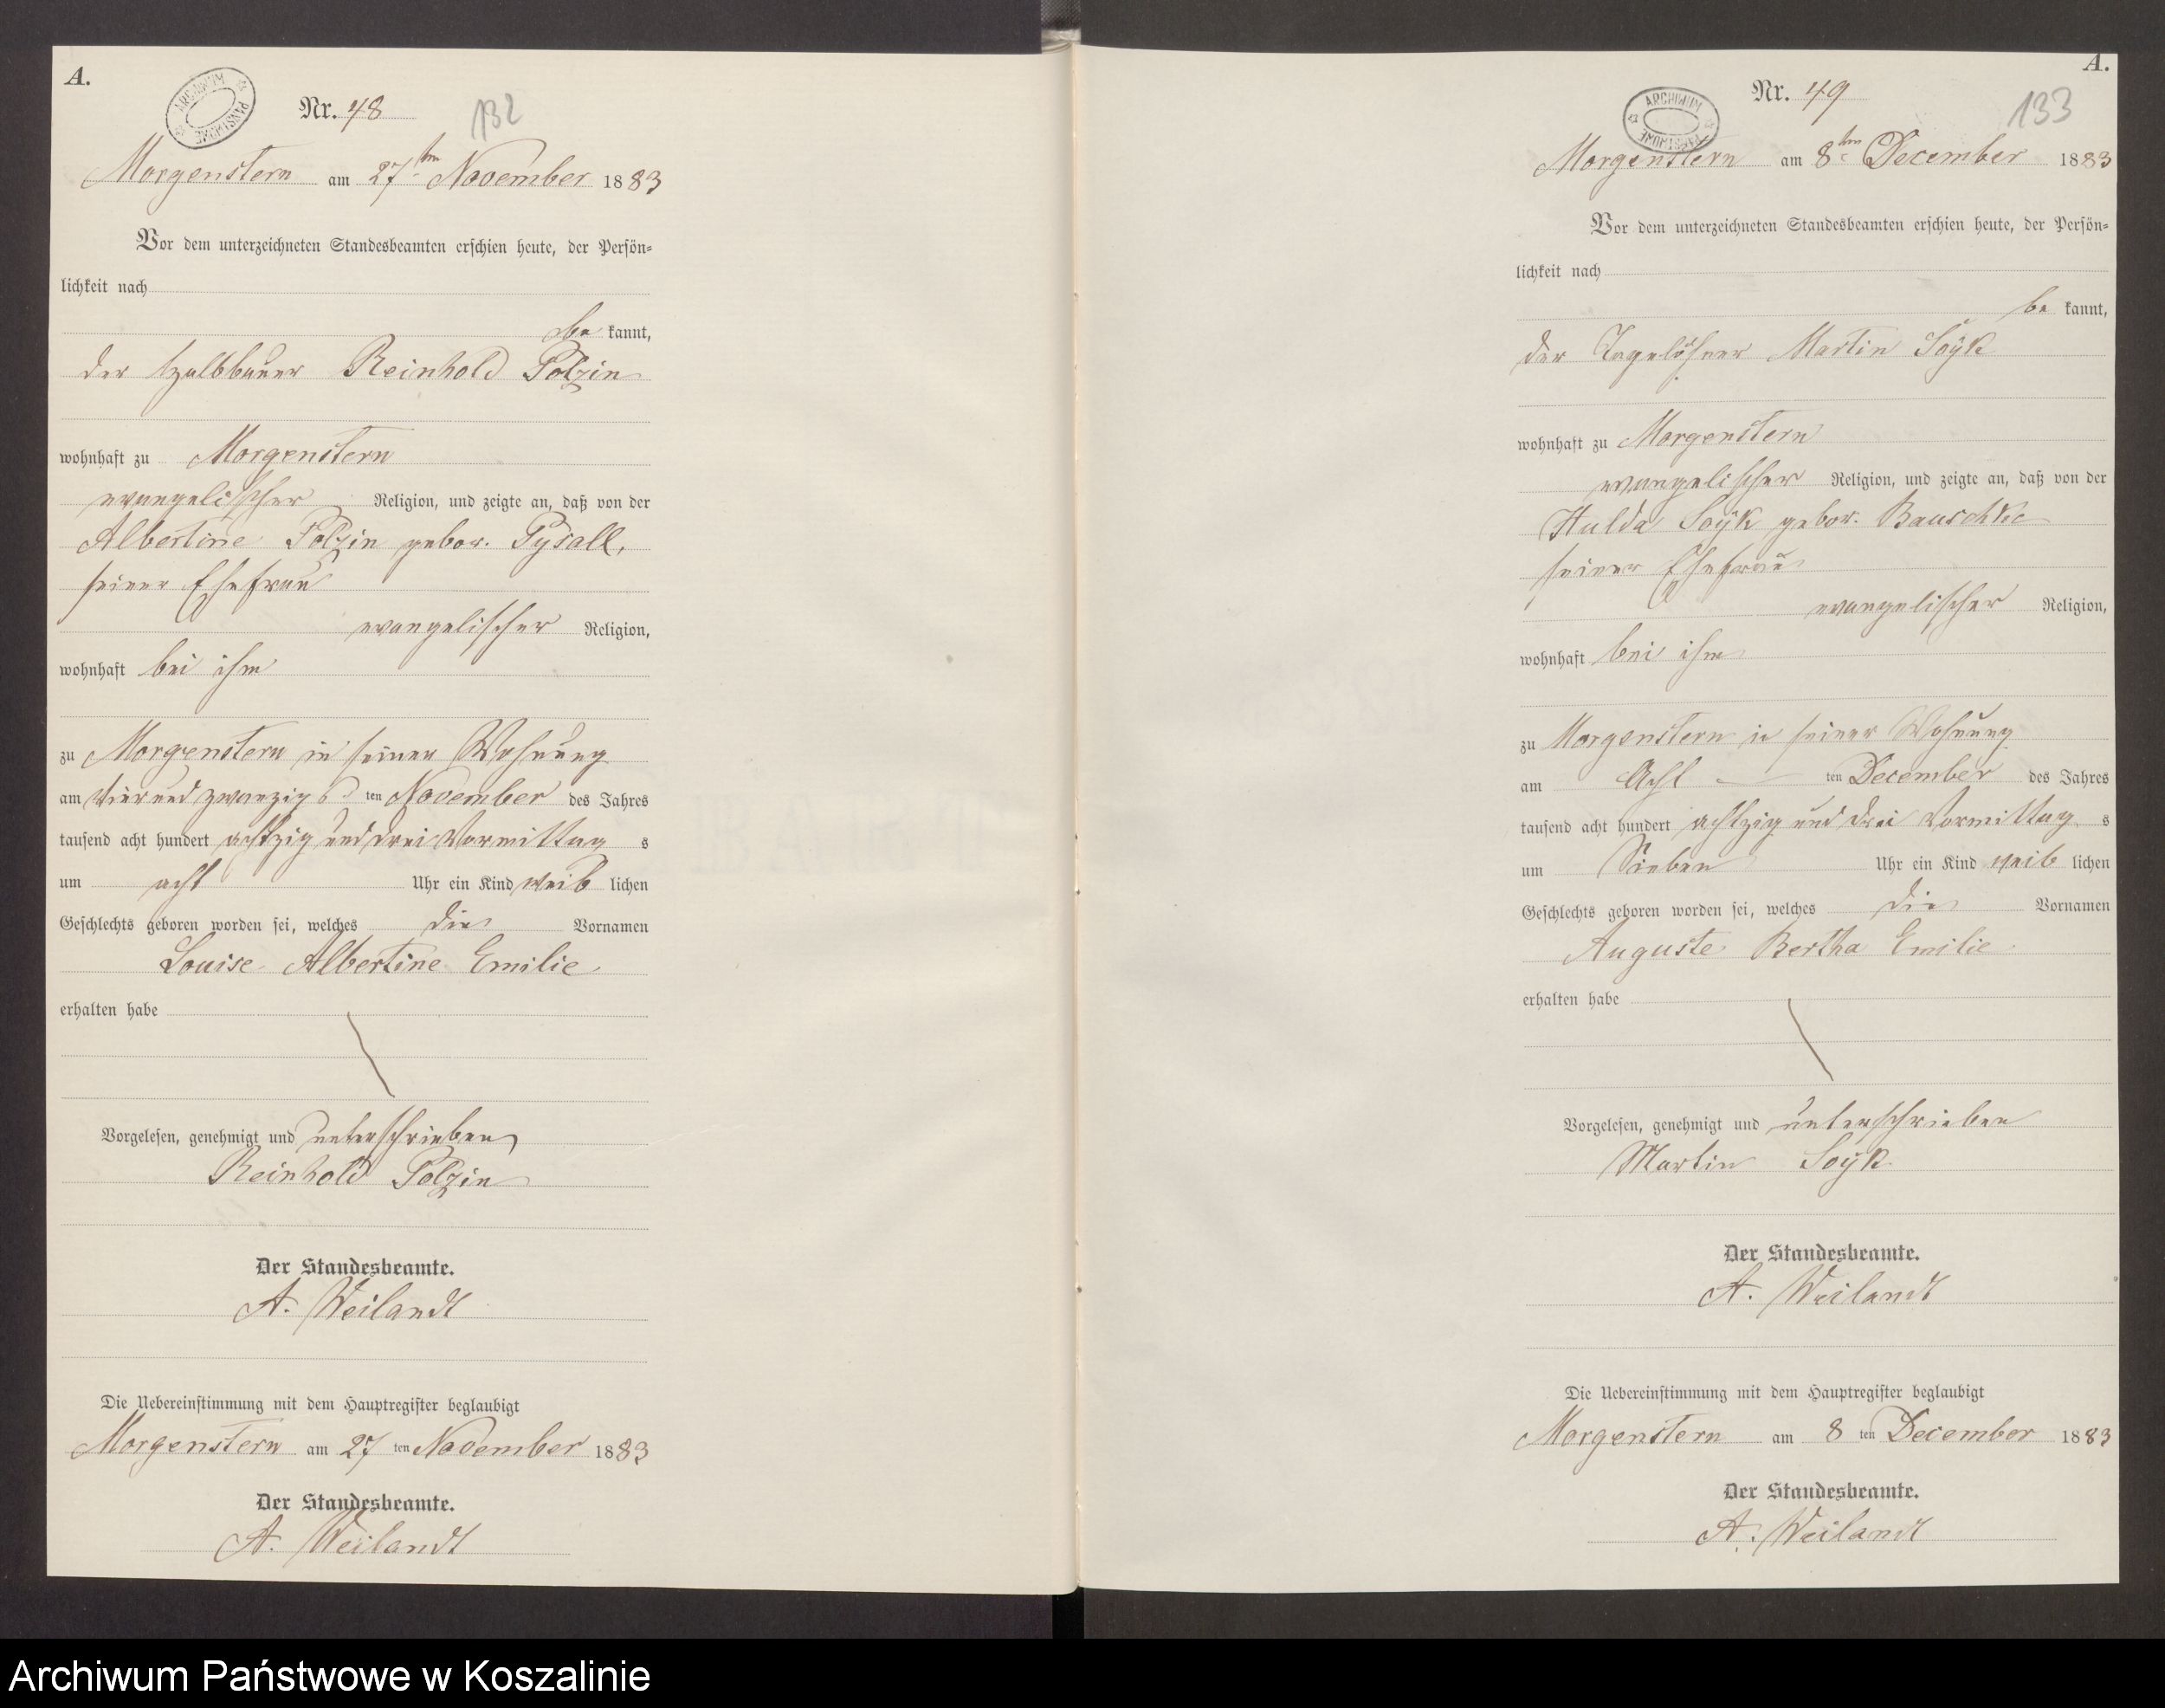 A.
ARCHIWUM PAŃSTWOWE
Nr. 48
132
Morgenstern am 27ten November 1883
Vor dem unterzeichneten Standesbeamten erschien heute, der Persön-
lichkeit nach
be kannt,
der Halbbauer Reinhold Polzin
wohnhaft zu Morgenstern
evangelischer Religion, und zeigte an, daß von der
Albertine Polzin gebor. Pysall,
seiner Ehefrau
evangelischer Religion,
wohnhaft bei ihm
zu Morgenstern in seiner Wohnung
am vier und zwanzigs ten November des Jahres
tausend acht hundert achtzig und drei Vormittag s
um acht Uhr ein Kind weib lichen
Geschlechts geboren worden sei, welches die Vornamen
Louise Albertine Emilie
erhalten habe
Vorgelesen, genehmigt und unterschrieben
Reinhold Polzin
Der Standesbeamte.
A. Weilandt
Die Uebereinstimmung mit dem Hauptregister beglaubigt
Morgenstern am 27 ten November 1883
Der Standesbeamte.
A. Weilandt
A.
ARCHIWUM PAŃSTWOWE
Nr. 49
133
Morgenstern am 8ten December 1883
Vor dem unterzeichneten Standesbeamten erschien heute, der Persön-
lichkeit nach
be kannt,
der Tagelöhner Martin Soÿk
wohnhaft zu Morgenstern
evangelischer Religion, und zeigte an, daß von der
Hulda Soÿk gebor. Bauschke
seiner Ehefrau
evangelischer Religion,
wohnhaft bei ihm
zu Morgenstern in seiner Wohnung
am Acht ten December des Jahres
tausend acht hundert achtzig und drei Vormittag s
um Sieben Uhr ein Kind weib lichen
Geschlechts geboren worden sei, welches die Vornamen
Auguste Bertha Emilie
erhalten habe
Vorgelesen, genehmigt und unterschrieben
Martin Soÿk
Der Standesbeamte.
A. Weilandt
Die Uebereinstimmung mit dem Hauptregister beglaubigt
Morgenstern am 8 ten December 1883
Der Standesbeamte.
A. Weilandt
Archiwum Państwowe w Koszalinie